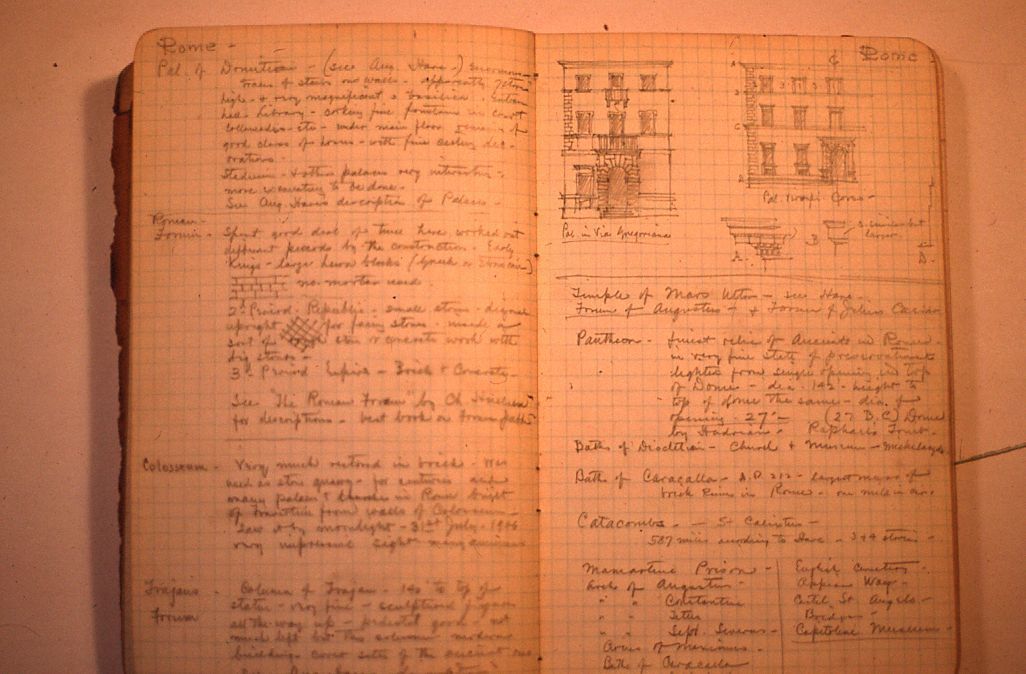 Rome -
Pal. of Domitian - (see Aug. Hare -) Enormous
traces of stairs on walls - apparently
high - & very magnificent - Basilica -
hall - Library - fine fountains in court
Colonnades - etc - under main floor of
good class of house - with fine ceiling dec-
orations.
Stadium - & other palaces very interesting -
more excavating to be done -
See Aug. Hare's description of Palace -
Roman
Forum - Spent good deal of time here, worked out
different periods by the construction - Early
Kings - large hewn blocks (Greek or Etruscan)
no mortar used
2d Period - Republic - small stones - diagonal
upright for facing stones - made a
sort of or concrete work with
big stones -
3d Period Empire - Brick & Concrete -
See "The Roman Forum" by Ch.
for descriptions - best book on
Colosseum - Very much restored in brick - Was
used as stone quarry - for centuries and
many palaces & churches in Rome built
of from walls of Colosseum -
Saw it by moonlight - 31st July - 1906
very impressive sight
Trajans - Column of Trajan - 140 to top of
Forum statue - very fine - sculptured
all the way up - pedestal good - not
much left but this column modern
buildings cover sites of the ancient
Rome
Pal. in Via Gregoriana
Pal. Corso -
A B D
Temple of Mars Ultor - see Hare -
Forum of Augustus & Forum of Julius Caesar
Pantheon - finest relic of Ancients in Rome -
in very fine state of preservation
lighted from single opening in top
of Dome - dia. 142 - height to
top of dome the same - dia. of
opening - 27' - (27 B.C.) Dome
by Hadrian - Raphael's Tomb -
Baths of Diocletian - Church & Museum -
Baths of Caracalla - A.D. 212 - largest of
brick ruins in Rome - one mile in
Catacombs - - St Calixtus -
587 miles according to Hare - 3 & 4 stories -
Mamartine Prison -
Arch of Augustus -
" " Constantine
" " Titus
" " Sept. Severus -
of Maximus
Baths of Caracalla
English Cemetery -
Appian Way -
Castel St. Angelo -
Bridges
Capitoline Museum -